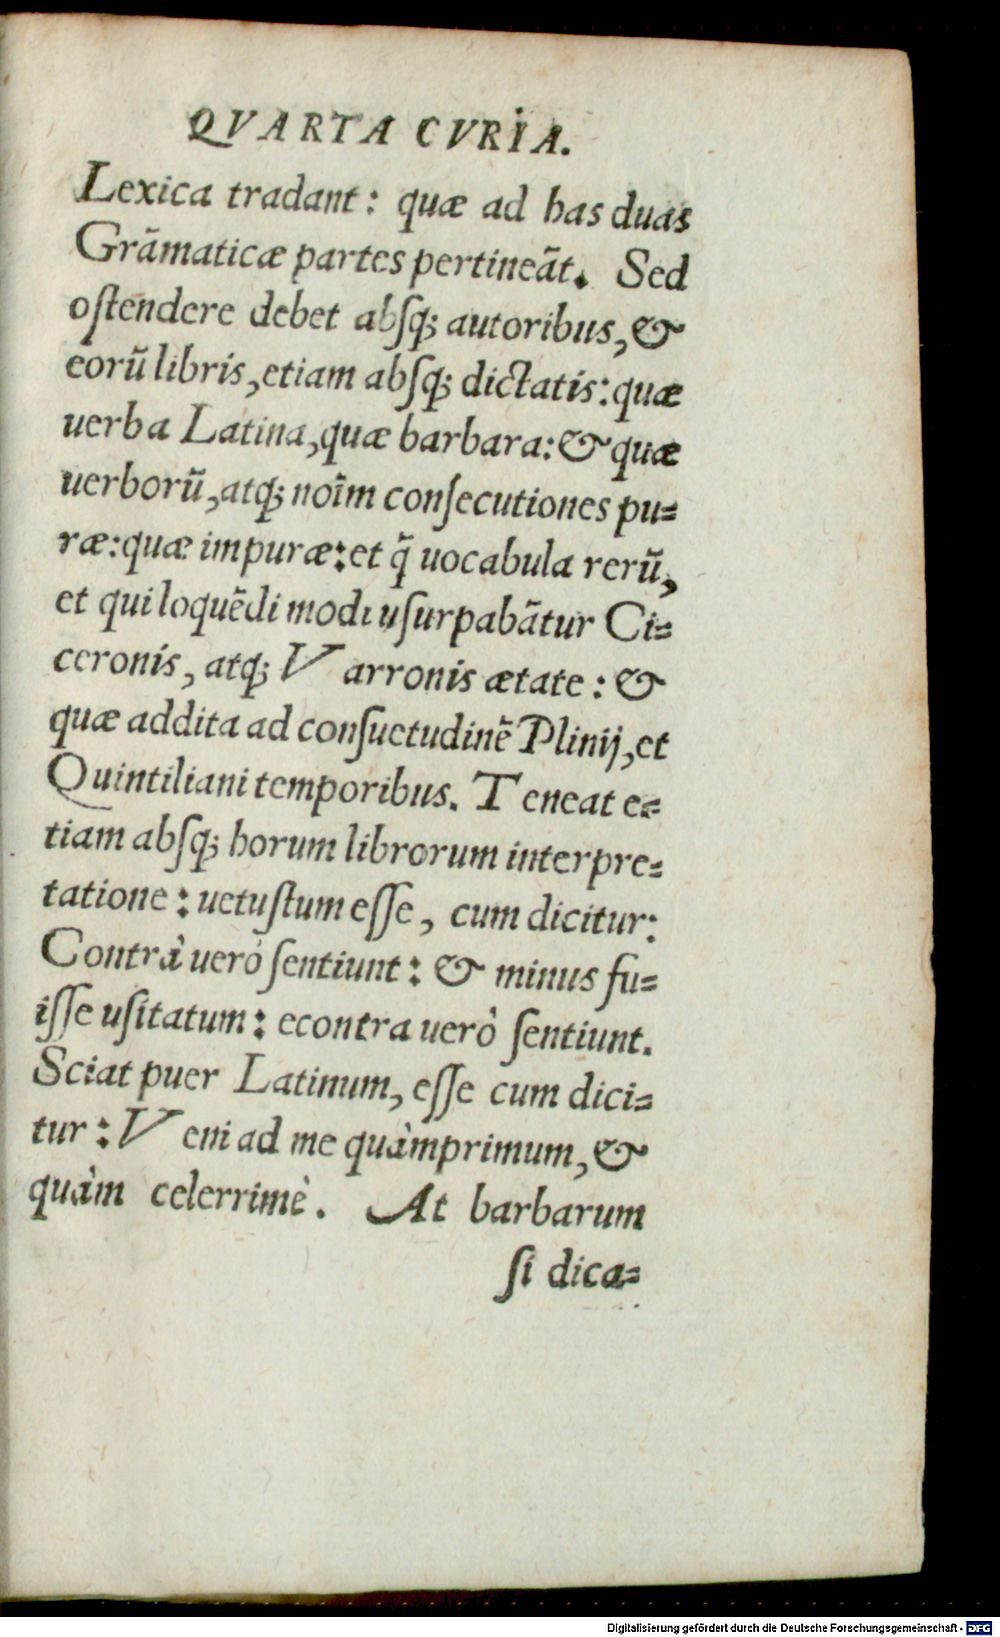 QVARTA CVRIA.
Lexica tradant: quæ ad has duas
Grãmaticæ partes pertineãt. Sed
oſtendere debet abſq; autoribus, &
eorũ libris, etiam abſq; dictatis: quæ
uerba Latina, quæ barbara: & quæ
uerborũ, atq; noĩm conſecutiones pu=
ræ: quæ impuræ: et q̃ uocabula rerũ,
et qui loquẽdi modi uſurpabãtur Ci=
ceronis, atq; Varronis ætate: &
quæ addita ad conſuetudinẽ Plinij, et
Quintiliani temporibus. Teneat e=
tiam abſq; horum librorum interpre=
tatione: uetuſtum eſſe, cum dicitur:
Contrà uerò ſentiunt: & minus fu=
iſſe uſitatum: econtra uerò ſentiunt.
Sciat puer Latinum, eſſe cum dici=
tur: Veni ad me quàmprimum, &
quàm celerrimè. At barbarum
ſi dica=
Digitalisierung gefördert durch die Deutsche Forschungsgemeinschaft - DFG